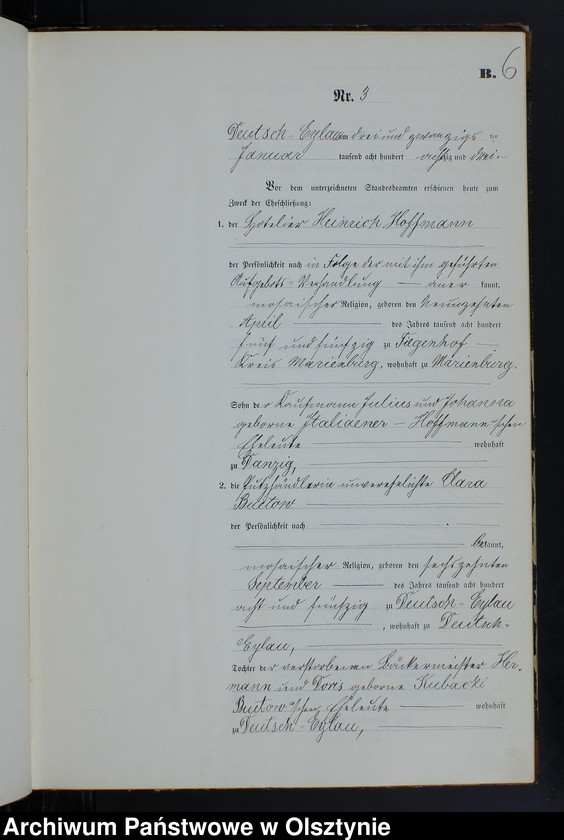 B. 6
Nr. 3
Deutsch-Eylau am drei und zwanzigs ten
Januar tausend acht hundert achtzig und drei.
Vor dem unterzeichneten Standesbeamten erschienen heute zum
Zweck der Eheschließung:
1. der Hotelier Heinrich Hoffmann
der Persönlichkeit nach in Folge der mit ihm geführten
Aufgebots-Verhandlung — aner kannt,
mosaischer Religion, geboren den Neunzehnten
April — des Jahres tausend acht hundert
fünf und fünfzig zu
Kreis Marienburg, wohnhaft zu Marienburg.
Sohn der Kaufmann Julius und Johanna
geborne Italiaener — Hoffmann-schen
Eheleute — wohnhaft
zu Danzig,
2. die Putzhändlerin unverehelichte Clara
Buetow
der Persönlichkeit nach
bekannt,
mosaischer Religion, geboren den sechszehnten
September — des Jahres tausend acht hundert
acht und fünfzig zu Deutsch-Eylau
, wohnhaft zu Deutsch-
Eylau,
Tochter der verstorbenen Bäckermeister Her-
mann und Doris geborne Kubacki
Buetow'schen Eheleute — wohnhaft
zu Deutsch-Eylau,
Archiwum Państwowe w Olsztynie